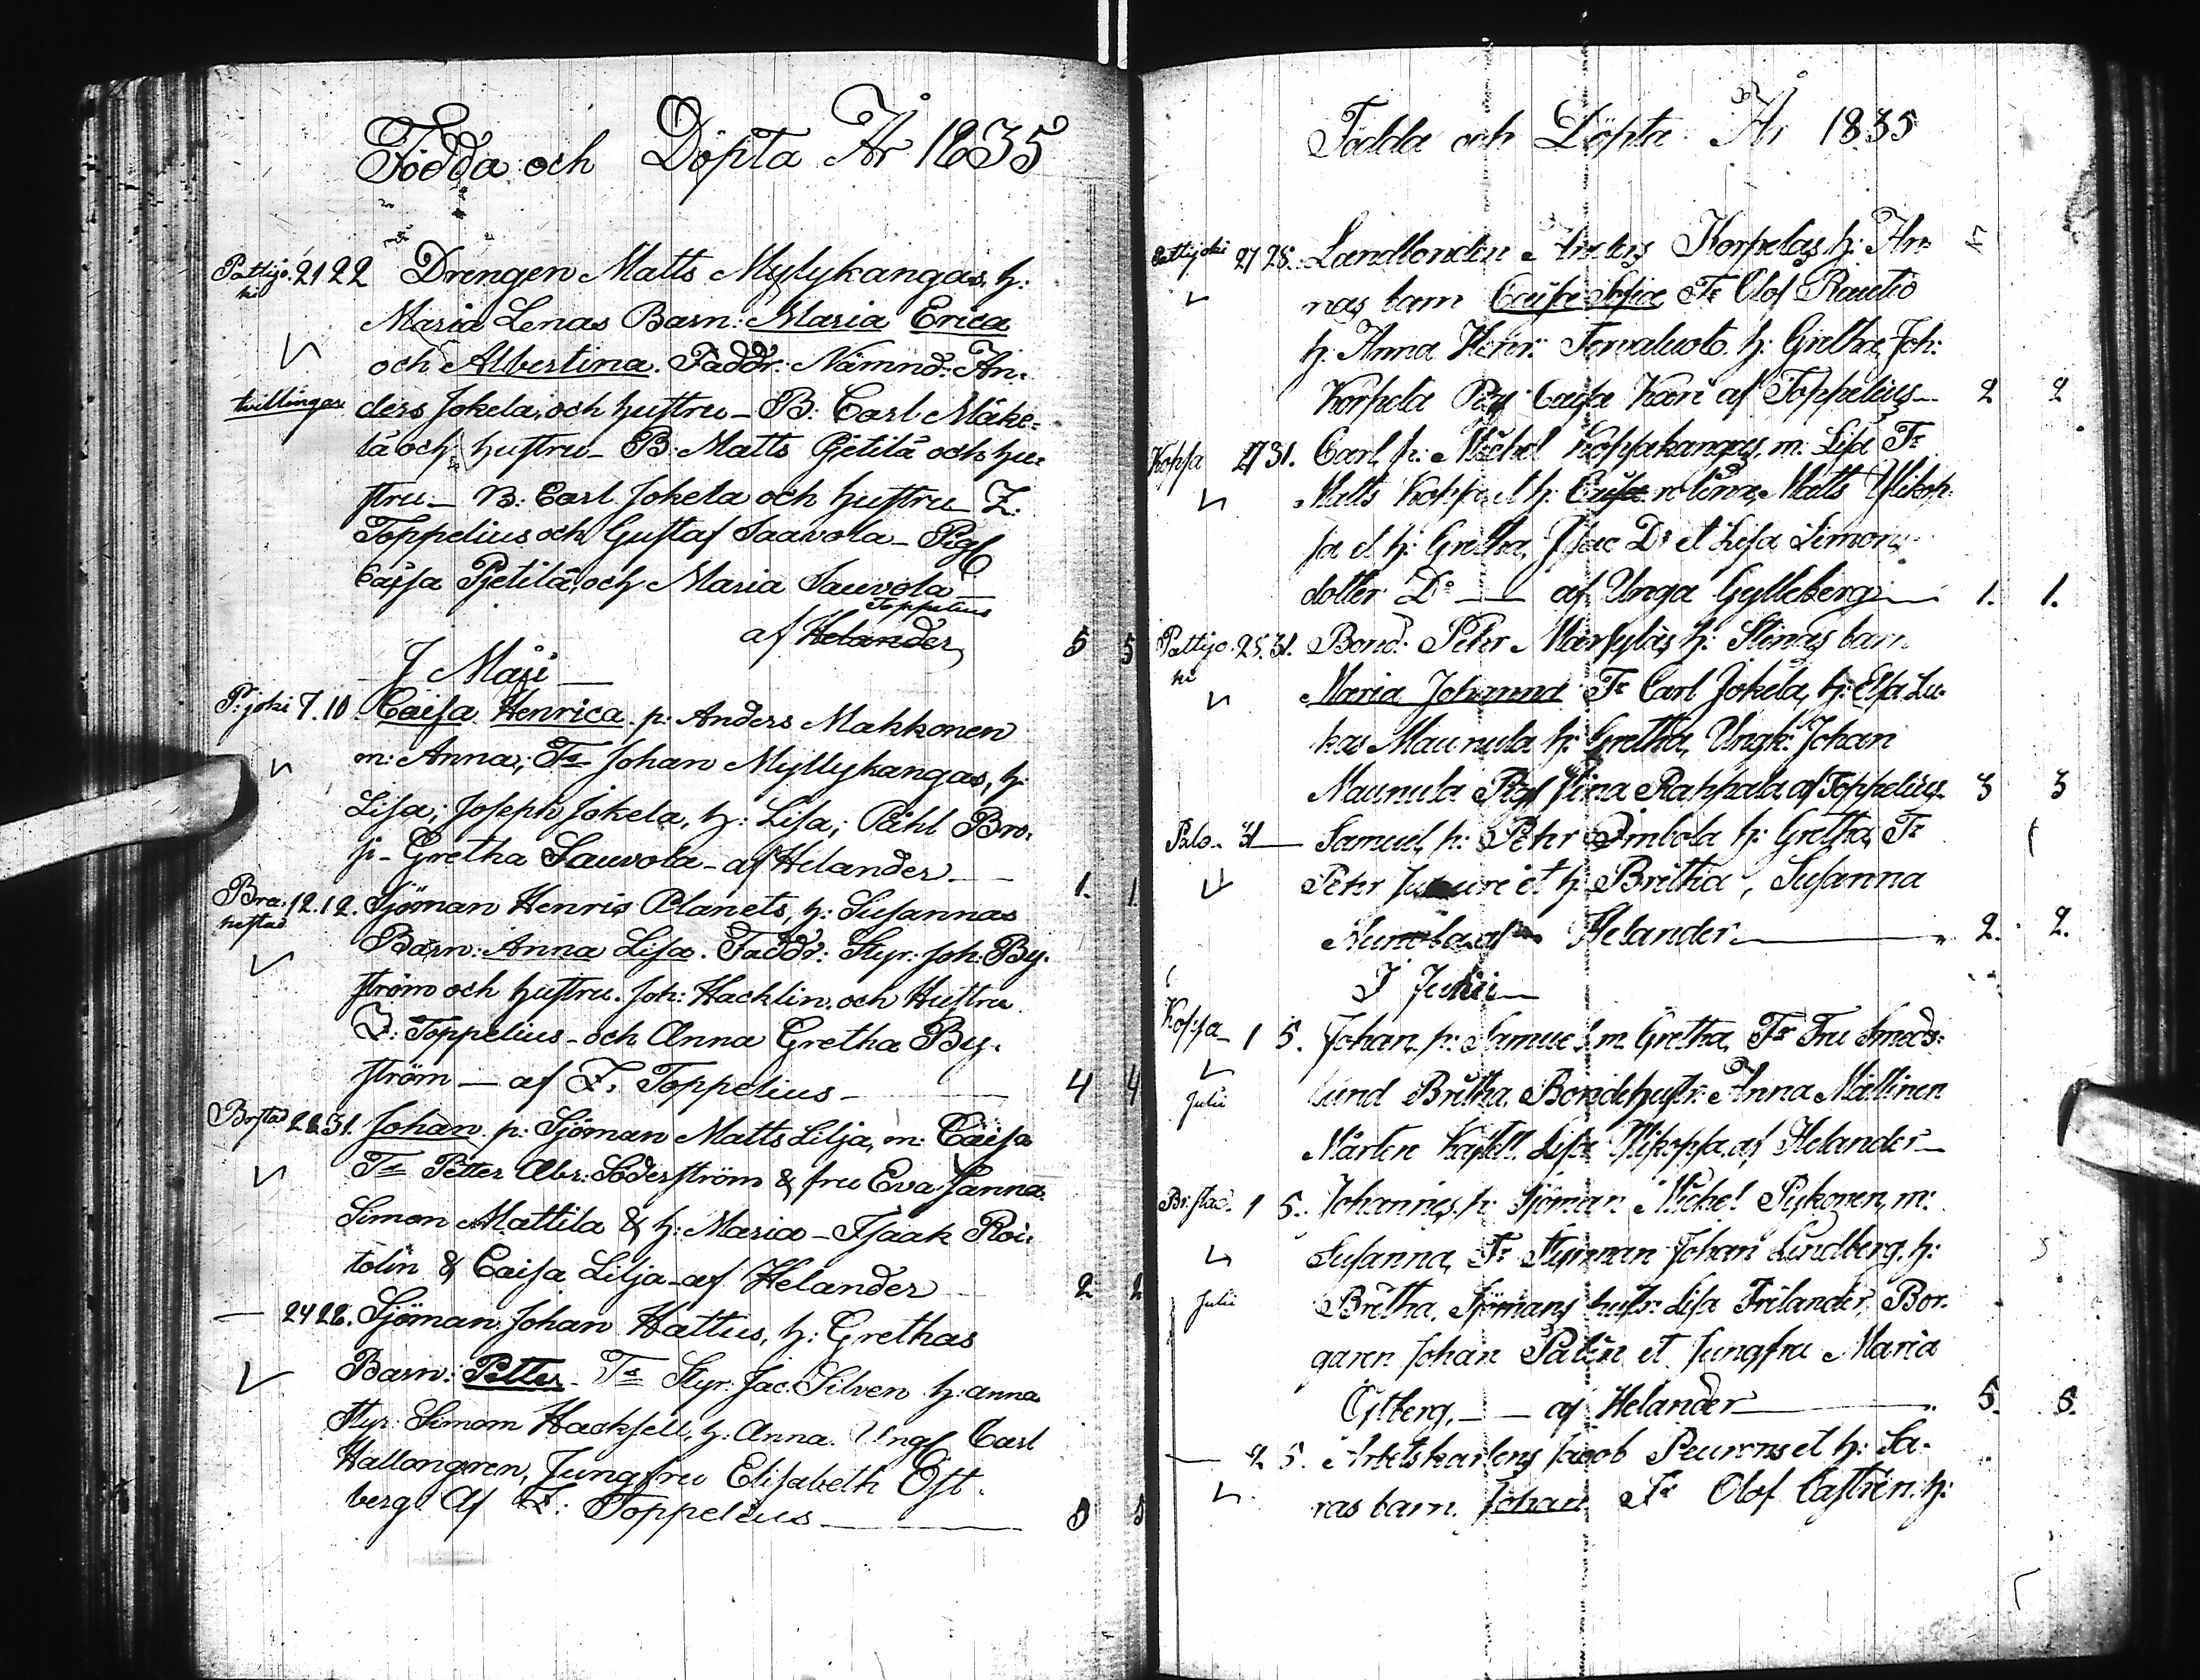 Födda och Döpta År 1835
Pattijo- 21 22 Drengen Matts Mylykangas, h:
ki
Maria Lenas Barn: Maria Erica
och Albertina. Faddr: Nämnd: An-
tvillingar ders Jokela, och hustru - B: Carl Mäke-
lä och hustru - B: Matts Pietilä och hu-
stru - B: Carl Jokela och hustru Z:
Toppelius och Gustaf Saavola - Pig
Caisa Pietilä, och Maria Sauvola -
Toppelius
af Helander 5 5
J Maji
P: joki 7. 10. Caisa Henrica p: Anders Makkonen
m: Anna; Ts Johan Myllykangas, h:
Lisa; Joseph Jokela, h: Lisa; Påhl Bro-
p - Gretha Sauvola - af Helander 1. 1
Bra- 12. 12. Sjöman Henris Planets, h: Susannas
hestad
Barn: Anna Lisa. Faddr: Styr: Joh: By-
ström och hustru. Joh: Hacklin och Hustru
Z: Toppelius - och Anna Gretha By-
ström - af Z. Toppelius 4 4
Brstad 28. 31. Johan p: Sjöman Matts Lilja, m: Caisa
Ts Petter Abr: Söderström & fru Eva Sanna
Simon Mattila & h: Maria - Isaak Roi-
tolin & Caisa Lilja - af Helander 2 2
— 24 28. Sjöman Johan Hattus, h: Grethas
Barn: Petter - Ts Styr: Jac: Silven h: anna
Styr: Simom Hacksell, h: Anna. Ungk Carl
Hallongren, Jungfru Elisabeth Öst-
berg. Af Z: Toppelius
Födda och Döpta År 1835
Pattijoki 27 28. Landbonden Anders Korpelas h: An-
nas barn Caisa Sofia Ts Olof Rautio
h: Anna Henr: Tervaluoto h: Gretha, Joh:
Korpela Pig Caisa Kari af Toppelius 2 2
Kopsa 27 31. Carl p: Michel Kopsakangas m: Lisa Ts
Matts Kopsa et h: Matts Ylikop-
sa et h: Gretha, Isac Do et Lisa Simons-
dotter Do — af Unga Gylleberg 1. 1.
Pattijo- 25. 31. Bond: Pehr h: Stinas barn
ki
Maria Johanna Ts Carl Jokela, h: Elsa Lu-
kas Maunula h: Gretha, Ungk: Johan
Maunula Pig Stina Rappala af Toppelius 3 3
Palo- 31 Samuel p: Pehr h: Gretha Ts
Pehr et h: Britha, Susanna
af Helander 2. 2.
J Julii
Kopsa 1 5. Johan p: Samuel m: Gretha, Ts Fru Smeds-
Julii lund Britha. Bondehustr: Anna Mattinen
Mårten Lisa Ylikopsa af Helander
Br.stad. 1 5. Johannes p: Sjöman Michel m:
Susanna, Ts Styrman Johan Lundberg, h:
Julii Britha, Sjömans hustr: Lisa Frilander, Bor-
garen Johan Palin et Jungfru Maria
Östberg, — af Helander 5. 5.
— 2 5. Arbetskarlens Jacob et h: Sa-
ras barn. Johan Ts Olof Castrén h: